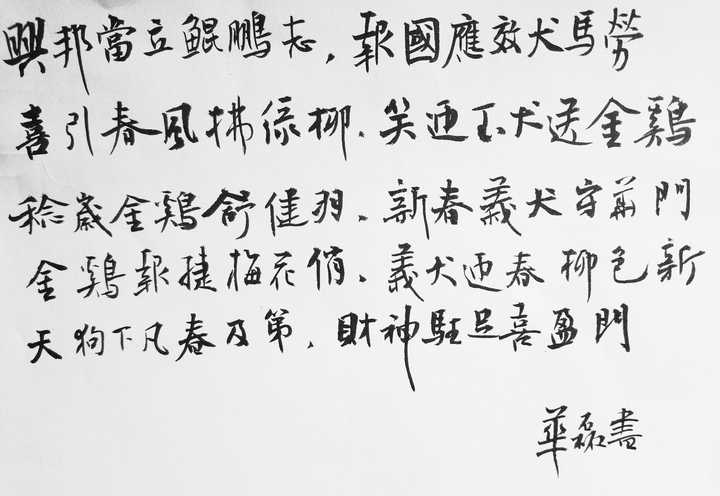 興邦當立鯤鵬志，報國應效犬馬勞
喜引春風拂綠柳．笑迎玉犬送金鷄
稔歲金鷄舒健羽．新春義犬守前門
金鷄報捷梅花俏．義犬迎春柳色新
天狗下凡春及第，財神駐足喜盈門
華磊書